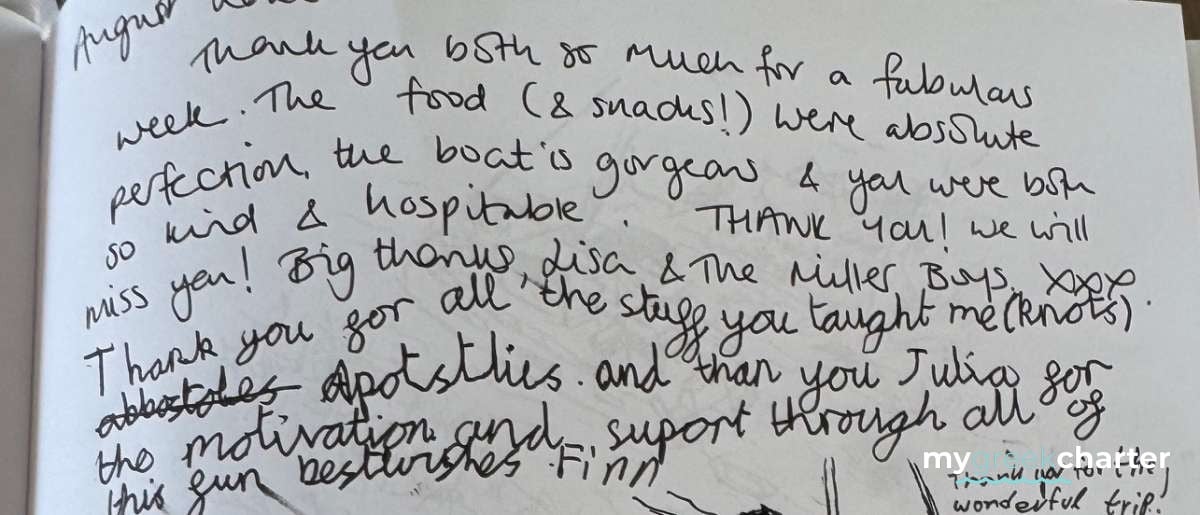 August
Thank you both so much for a fabulous
week. The food (& snacks!) were absolute
perfection, the boat is gorgeous & you were both
so kind & hospitable. THANK YOU! we will
miss you! Big thanks, Lisa & The Miller Boys. xxxx.
Thank you for all the stuff you taught me (knots)
abbostoles Apotstlies. and than you Julia for
the motivation and suport through all of
this fun bestwishes Finn
mygreekcharter
thank you for the
wonderful trip.